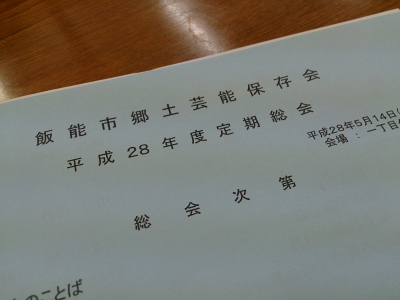 飯能市郷土芸能保存会
平成28年度定期総会
平成28年5月14日(
会場：一丁目
総会次第
のことば